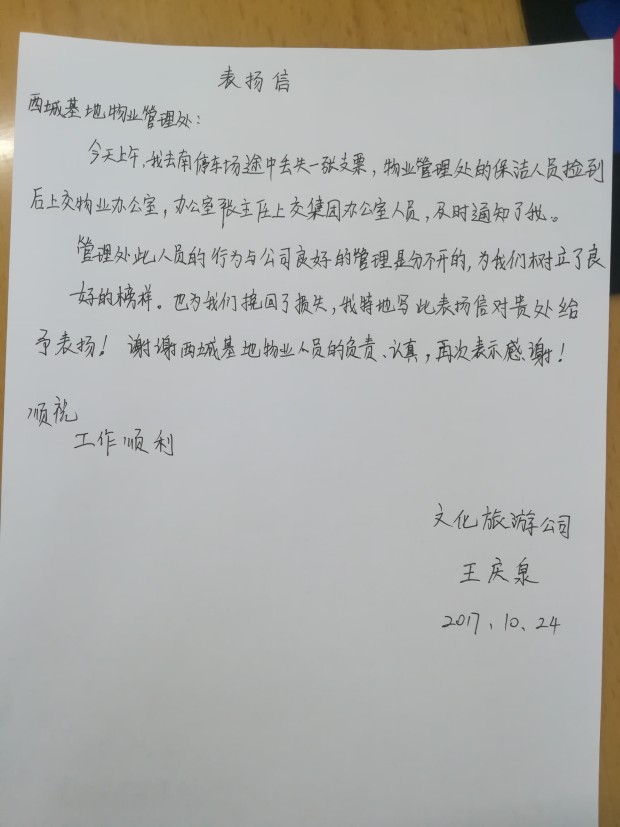 表扬信
西城基地物业管理处:
今天上午,我去南停车场途中丢失一张支票,物业管理处的保洁人员捡到
后上交物业办公室,办公室张主任上交集团办公室人员,及时通知了我。
管理处此人员的行为与公司良好的管理是分不开的,为我们树立了良
好的榜样。也为我们挽回了损失,我特地写此表扬信对贵处给
予表扬!谢谢西城基地物业人员的负责、认真,再次表示感谢!
顺祝
工作顺利
文化旅游公司
王庆泉
2017、10、24